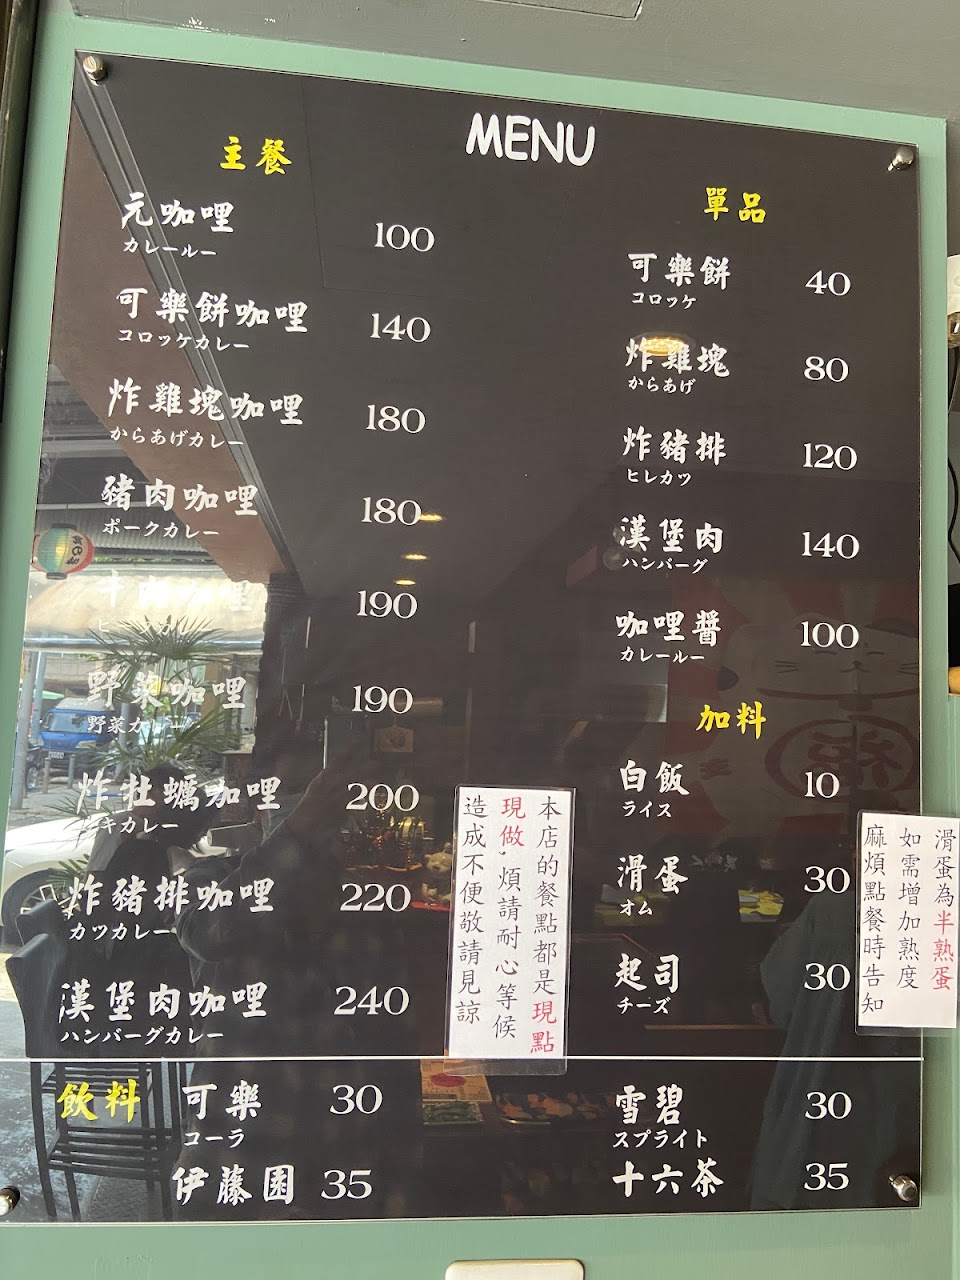 MENU
主餐
元咖哩 100
カレールー
可樂餅咖哩 140
コロッケカレー
炸雞塊咖哩 180
からあげカレー
豬肉咖哩 180
ポークカレー
牛肉咖哩 190
野菜咖哩 190
野菜カレー
炸牡蠣咖哩 200
キカレー
炸豬排咖哩 220
カツカレー
漢堡肉咖哩 240
ハンバーグカレー
單品
可樂餅 40
コロッケ
炸雞塊 80
からあげ
炸豬排 120
ヒレカツ
漢堡肉 140
ハンバーグ
咖哩醬 100
カレールー
加料
白飯 10
ライス
滑蛋 30
オム
起司 30
チーズ
本店的餐點都是現點
現做，煩請耐心等候
造成不便敬請見諒
滑蛋為半熟蛋
如需增加熟度
麻煩點餐時告知
飲料
可樂 30
コーラ
伊藤園 35
雪碧 30
スプライト
十六茶 35